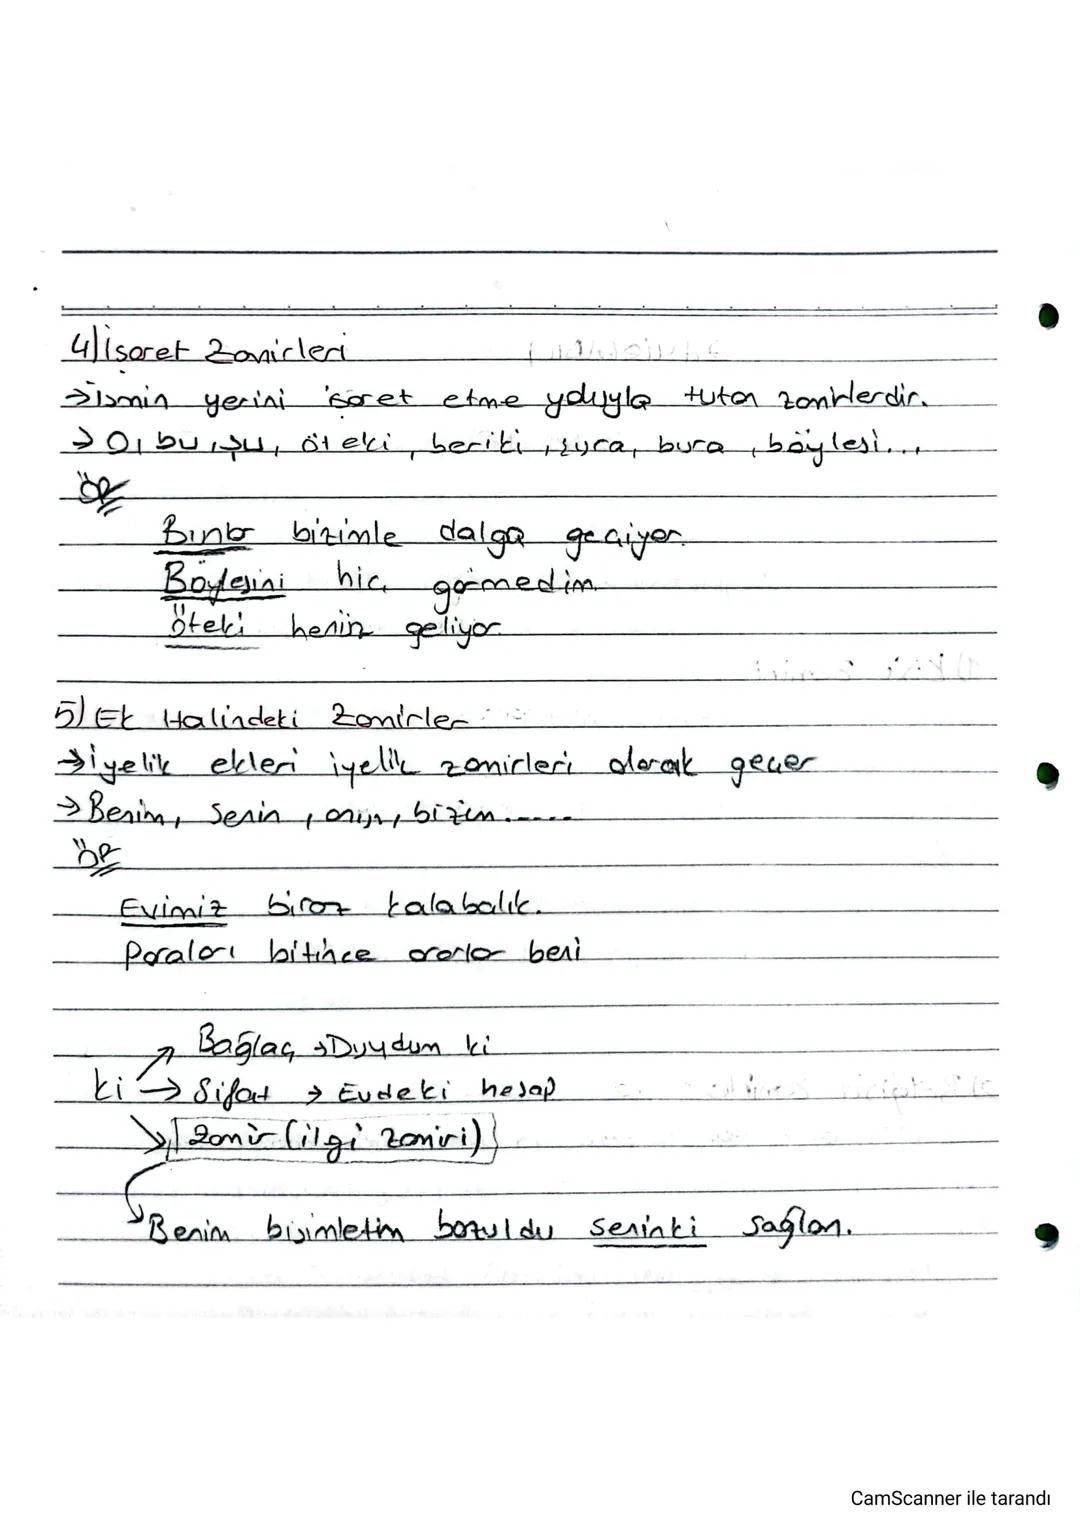 4) İşaret Zamirleri
→ İsmin yerini işaret etme yoluyla tutan zamirlerdir.
→ O, bu, şu, öteki, beriki, şura, bura, böylesi...
ÖR
Bunlar bizimle dalga geçiyor.
Böylesini hiç görmedim.
Öteki henüz geliyor.
5) Ek Halindeki Zamirler
→ İyelik ekleri iyelik zamirleri olarak geçer
→ Benim, Senin, onun, bizim......
ÖR
Evimiz biraz kalabalık.
Paraları bitince ararlar beni
Bağlaç → Duydum ki
ki → Sıfat → Evdeki hesap
Zamir (ilgi zamiri)
Benim bisikletim bozuldu seninki sağlam.
CamScanner ile tarandı